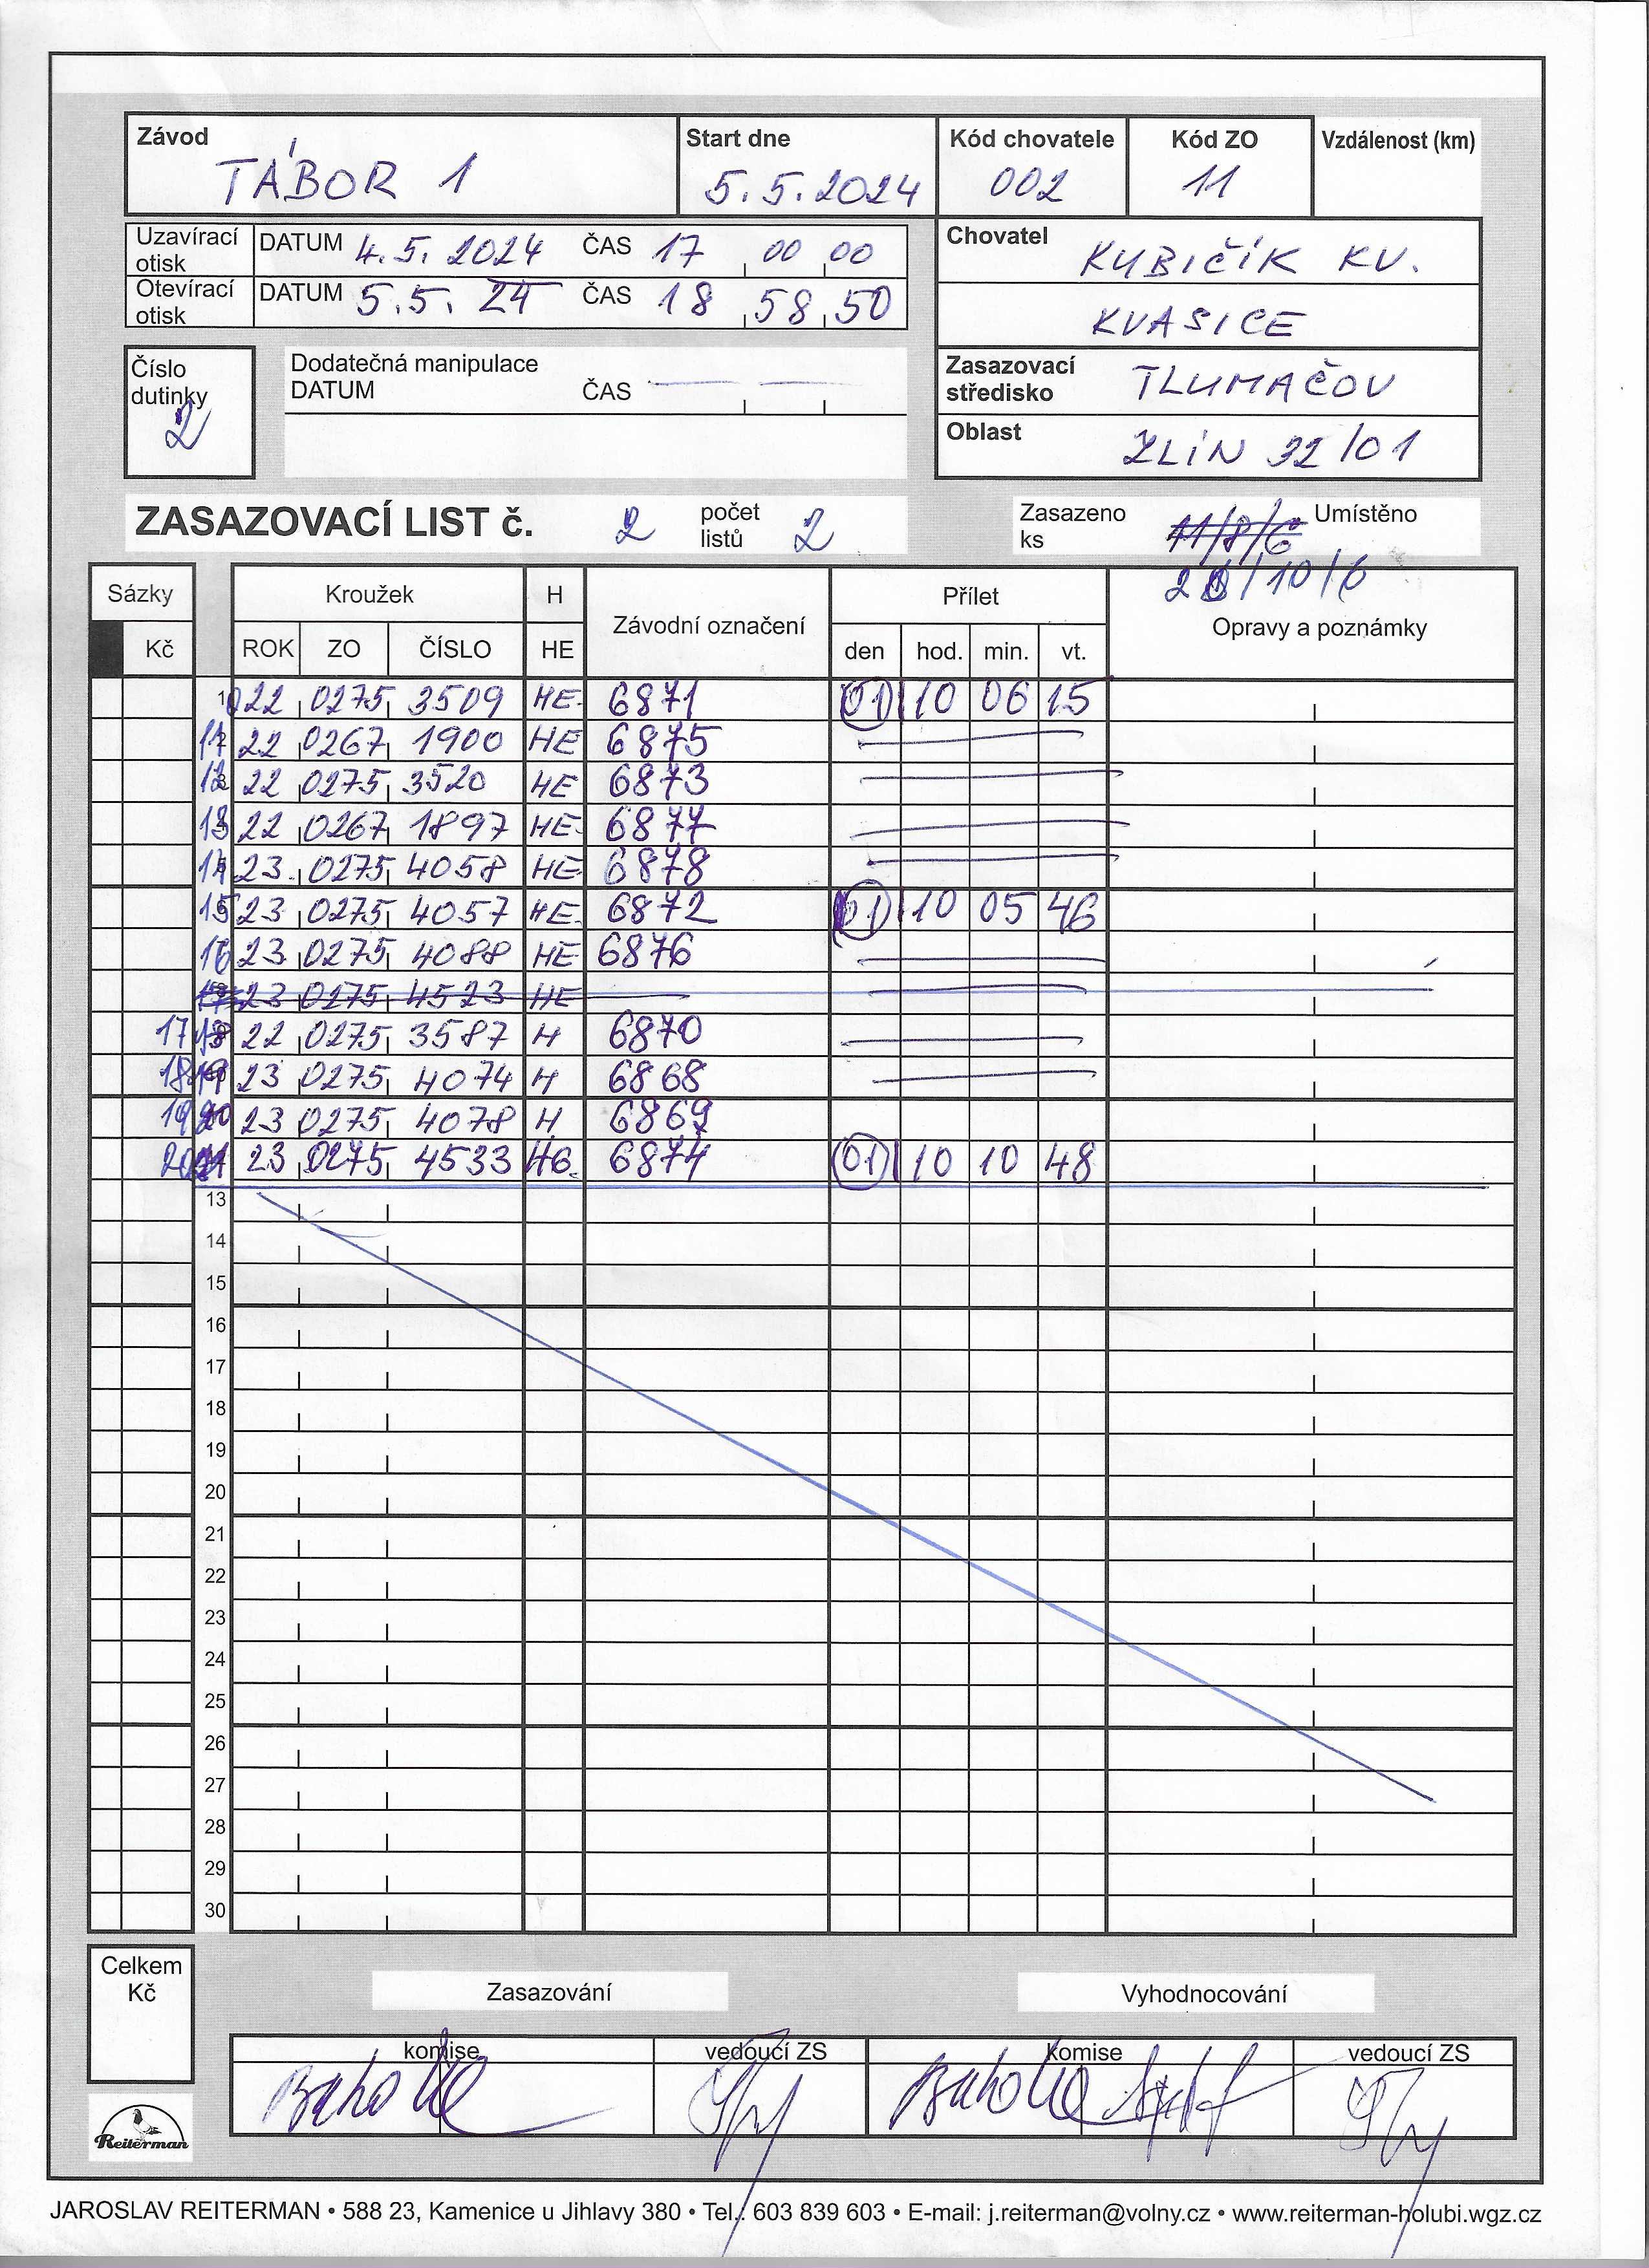 Závod Start dne Kód chovatele Kód ZO Vzdálenost (km)
TÁBOR 1 5.5.2024 002 11
Uzavírací otisk DATUM 4.5.2024 ČAS 17 00 00
Otevírací otisk DATUM 5.5.24 ČAS 18 58 50
Chovatel KUBIČÍK KV.
KVASICE
Číslo dutinky 2
Dodatečná manipulace
DATUM ČAS
Zasazovací středisko TLUMAČOV
Oblast ZLÍN 32/01
ZASAZOVACÍ LIST č. 2 počet listů 2 Zasazeno ks 11/8/6 Umístěno
/10/6
Sázky Kroužek H Závodní označení Přílet Opravy a poznámky
Kč ROK ZO ČÍSLO HE den hod. min. vt.
10 22 0275 3509 HE 6871 01 10 06 15
11 22 0267 1900 HE 6875
12 22 0275 3520 HE 6873
13 22 0267 1897 HE 6877
14 23 0275 4058 HE 6878
15 23 0275 4057 HE 6872 01 10 05 46
16 23 0275 4088 HE 6876
23 0275 4523 HE
17 22 0275 3587 H 6870
18 23 0275 4074 H 6868
19 23 0275 4078 H 6869
20 23 0275 4533 6874 01 10 10 48
13
14
15
16
17
18
19
20
21
22
23
24
25
26
27
28
29
30
Celkem Kč
Zasazování Vyhodnocování
komise vedoucí ZS komise vedoucí ZS
Reiterman
JAROSLAV REITERMAN • 588 23, Kamenice u Jihlavy 380 • Tel.: 603 839 603 • E-mail: j.reiterman@volny.cz • www.reiterman-holubi.wgz.cz